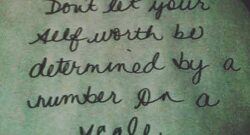 Don't let your
self worth be
determined by a
number on a
scale.